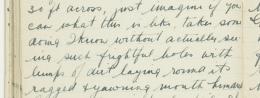 30 ft across, just imagine if you
can what this is like, takes some
doing I know without actually see
ing such frightful holes with
lumps of dirt laying round its
ragged & yawning mouth